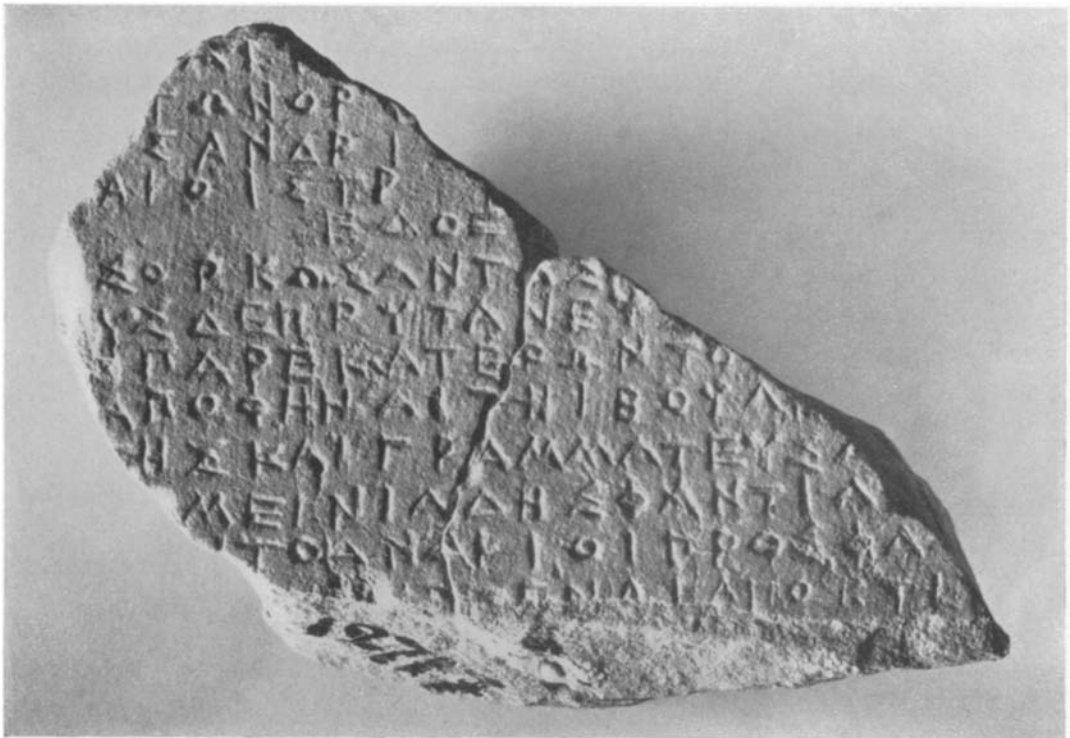 ΝΕΙ
ΓΩΝΟΡ
ΣΑΝΔΡΙ
ΑΙΟΙΣΙΡ
ΕΔΟΞ
ΣΟΡΚΟΣΑΝΤ ΣΟ
ΥΣΔΕΠΡΥΤΑΝΕΥ
ΠΑΡΕΚΑΤΕΡΩΝΤΟ
ΑΠΟΦΗΝΑΙΤΗΙΒΟΥΛ
ΗΣΚΑΙΓΡΑΜΜΑΤΕΥΣΑ
ΜΕΙΝΙΑΔΗΣΦΑΝΤΙΛ
ΤΟΑΝΔΡΙΟΙΠΡΟΣΟΛ
ΗΝΑΡΑΠΟΚΤΙ